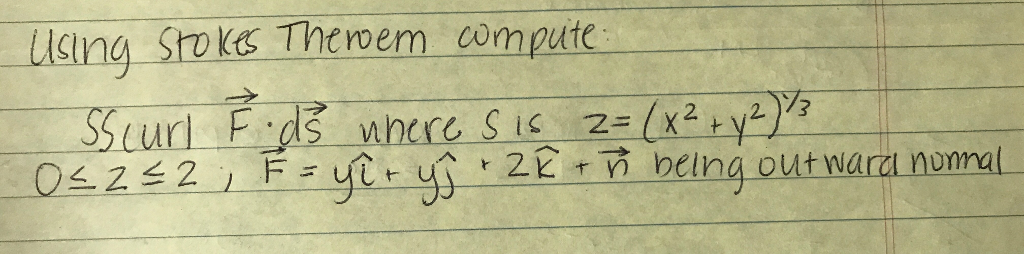 Using Stokes Theroem compute:
SScurl F⃗·ds⃗ where S is z=(x²+y²)^1/3
0≤z≤2, F⃗ = yî + yĵ + 2k̂ + n⃗ being outward normal